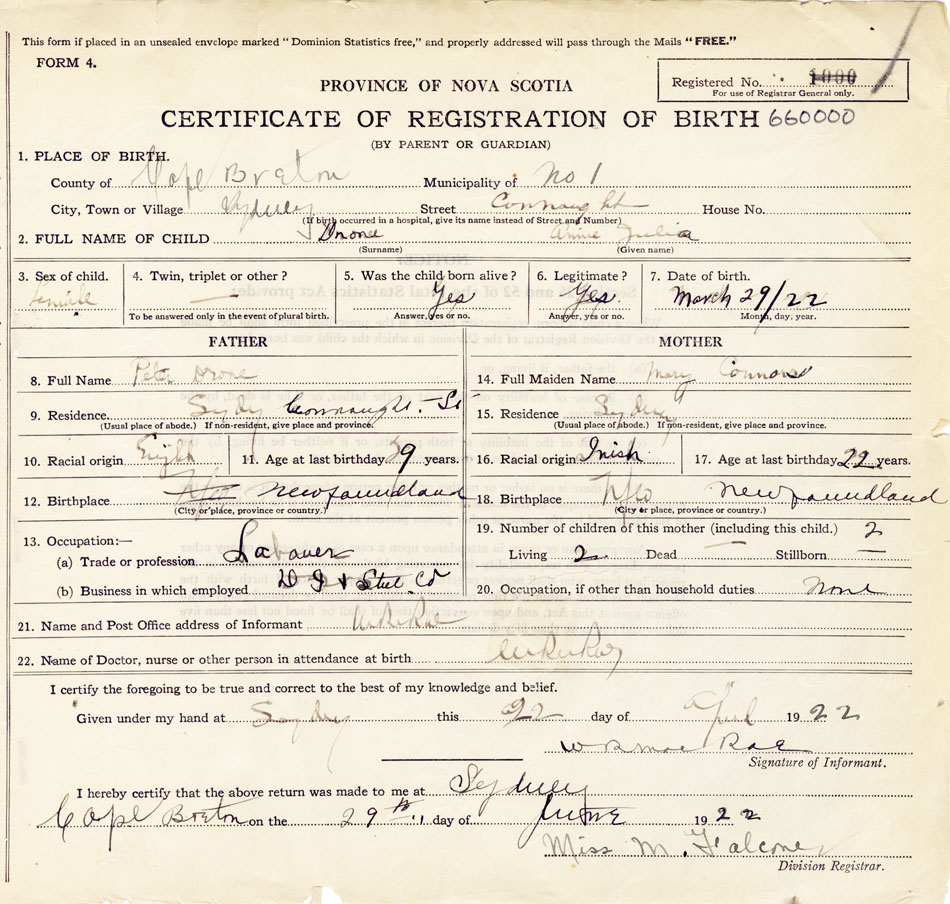 This form if placed in an unsealed envelope marked "Dominion Statistics free," and properly addressed will pass through the Mails "FREE."
FORM 4.
Registered No. 1000
For use of Registrar General only.
PROVINCE OF NOVA SCOTIA
CERTIFICATE OF REGISTRATION OF BIRTH 660000
(BY PARENT OR GUARDIAN)
1. PLACE OF BIRTH.
County of Cape Breton Municipality of No 1
City, Town or Village Sydney Street Connaught House No.
(If birth occurred in a hospital, give its name instead of Street and Number)
2. FULL NAME OF CHILD Drone Annie Julia
(Surname) (Given name)
3. Sex of child. 4. Twin, triplet or other? 5. Was the child born alive? 6. Legitimate? 7. Date of birth.
Female — Yes Yes. March 29/22
To be answered only in the event of plural birth. Answer, yes or no. Answer, yes or no. Month, day, year.
FATHER MOTHER
8. Full Name Peter Drone
14. Full Maiden Name Mary Connors
9. Residence Sydy Connaught St
15. Residence Sydney
(Usual place of abode.) If non-resident, give place and province.
(Usual place of abode.) If non-resident, give place and province.
10. Racial origin 11. Age at last birthday 39 years.
16. Racial origin Irish 17. Age at last birthday 22 years.
12. Birthplace Nfld Newfoundland
(City or place, province or country.)
18. Birthplace Nfld Newfoundland
(City or place, province or country.)
13. Occupation:—
19. Number of children of this mother (including this child.) 2
(a) Trade or profession Labourer
Living 2 Dead — Stillborn —
(b) Business in which employed D I & Steel Co
20. Occupation, if other than household duties None
21. Name and Post Office address of Informant
22. Name of Doctor, nurse or other person in attendance at birth
I certify the foregoing to be true and correct to the best of my knowledge and belief.
Given under my hand at Sydney this 22 day of April 1922
Signature of Informant.
I hereby certify that the above return was made to me at Sydney
Cape Breton on the 29th day of June 1922
Miss M. Falconer
Division Registrar.